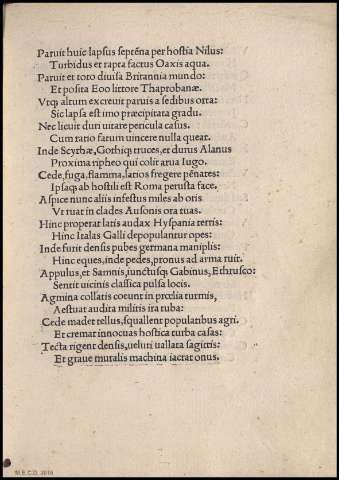 Paruit huic lapsus septēna per hostia Nilus:
Turbidus et rapta factus Oaxis aqua.
Paruit et toto diuisa Britannia mundo:
Et posita Eoo littore Thaprobanæ.
Vrqʒ altum excreuit paruis a sedibus orta:
Sic lapsa est imo præcipitata gradu.
Nec licuit duri uitare pericula casus.
Cum ratio fatum uincere nulla queat.
Inde Scythæ, Gothiqʒ truces, et durus Alanus
Proxima ripheo qui colit arua Iugo.
Cede, fuga, flamma, latios fregere pēnates:
Ipsaqʒ ab hostili est Roma perusta face.
Aspice nunc aliis infestus miles ab oris
Vt ruat in clades Ausonis ora tuas.
Hinc properat latiis audax Hyspania terris:
Hinc Italas Galli depopulantur opes:
Inde furit densis pubes germana maniplis:
Hinc eques, inde pedes, pronus ad arma ruit.
Appulus, et Samnis, iunctusqʒ Gabinus, Ethrusco:
Sentit uicinis classica pulsa locis.
Agmina collatis coeunt in prœlia turmis,
Aestuat audita militis ira tuba:
Cede madet tellus, squallent populatibus agri.
Et cremat innocuas hostica turba casas:
Tecta rigent densis, ueluti uallata sagittis:
Et graue muralis machina iactat onus.
M.E.C.D. 2016